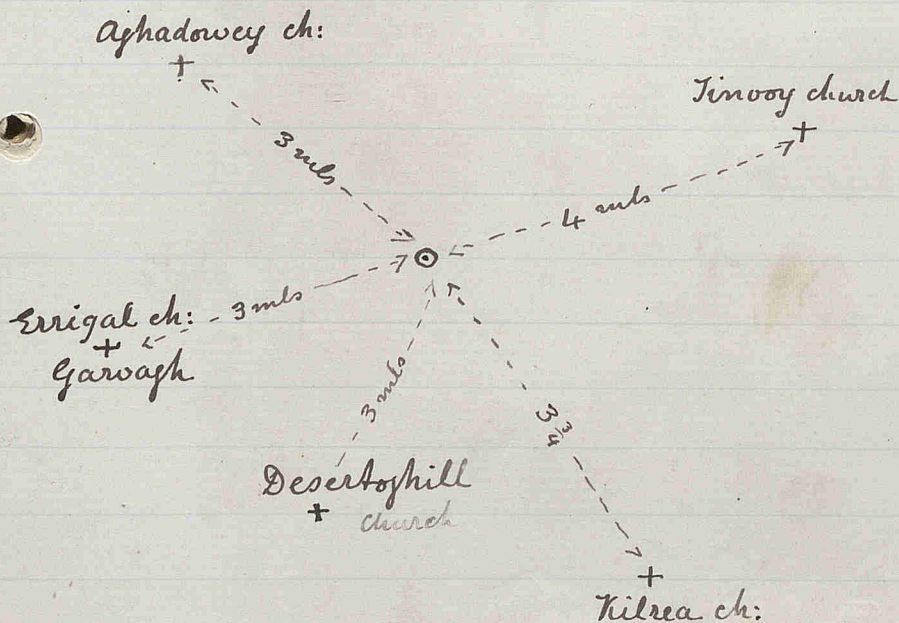 Aghadowey ch:
Finvoy church
3 mls
4 mls
Errigal ch:
3 mls
Garvagh
3 mls
3¾
Desertoghill
church
Kilrea ch: